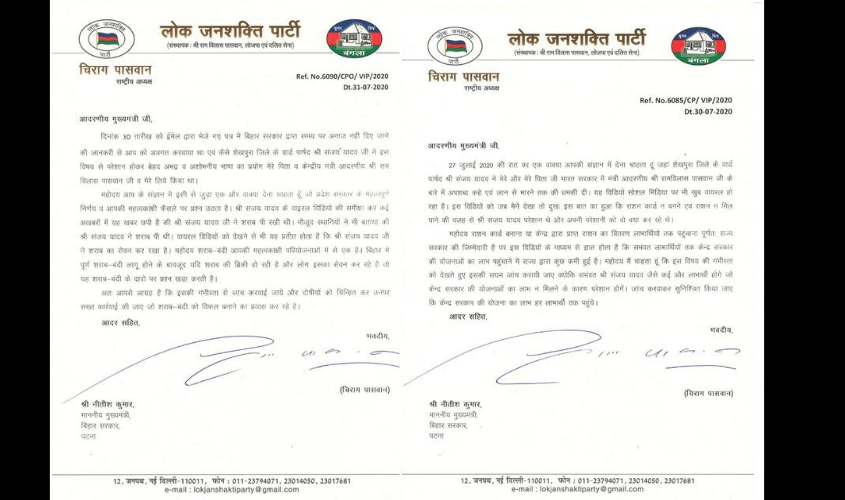 लोक जनशक्ति पार्टी
(संस्थापक : श्री राम विलास पासवान, लोजपा एवं दलित सेना)
बंगला
चिराग पासवान
राष्ट्रीय अध्यक्ष
Ref. No.6090/CPO/ VIP/2020
Dt.31-07-2020
आदरणीय मुख्यमंत्री जी,
दिनांक 30 तारीख को ईमेल द्वारा भेजे गए पत्र में बिहार सरकार द्वारा समय पर अनाज नहीं दिए जाने
की जानकारी से आप को अवगत करवाया था एवं कैसे शेखपुरा जिले के वार्ड पार्षद श्री संजय यादव जी ने इस
विषय से परेशान होकर बेहद अभद्र व अशोभनीय भाषा का प्रयोग मेरे पिता व केन्द्रीय मंत्री आदरणीय श्री राम
विलास पासवान जी व मेरे लिये किया था।
महोदय आप के संज्ञान में इसी से जुड़ा एक और वाक्या देना चाहता हूँ, जो प्रदेश सरकार के महत्वपूर्ण
निर्णय व आपकी महत्वकांक्षी फैसले पर प्रश्न उठता है। श्री संजय यादव के वाइरल विडियो की समीक्षा कर कई
अखबरों में यह खबर छपी है की श्री संजय यादव जी ने शराब पी रखी थी। मौजूद स्थानियों ने भी बताया की
श्री संजय यादव ने शराब पी थी। वायरल विडियो को देखने से भी यह प्रतीत होता है कि श्री संजय यादव जी
ने शराब का सेवन कर रखा है। महोदय शराब-बंदी आपकी महत्वकांक्षी परियोजनाओं में से एक है। बिहार में
पूर्ण शराब-बंदी लागू होने के बावजूद यदि शराब की ब्रिकी हो रही है और लोग इसका सेवन कर रहे है तो
यह शराब-बंदी के दावो पर प्रश्न खड़ा करती है।
अतः आपसे आग्रह है कि इसकी गंभीरता से जांच करवाई जाये और दोषीयों को चिन्हित कर उनपर
सख्त कार्रवाई की जाए जो शराब-बंदी को विफल बनाने का प्रयास कर रहे है।
आदर सहित,
भवदीय,
(चिराग पासवान)
श्री नीतीश कुमार,
माननीय मुख्यमंत्री,
बिहार सरकार,
पटना
12, जनपथ, नई दिल्ली-110011, फोन : 011-23794071, 23014050, 23017681
e-mail : lokjanshaktiparty@gmail.com
लोक जनशक्ति पार्टी
(संस्थापक : श्री राम विलास पासवान, लोजपा एवं दलित सेना)
बंगला
चिराग पासवान
राष्ट्रीय अध्यक्ष
Ref. No.6085/CP/ VIP/2020
Dt.30-07-2020
आदरणीय मुख्यमंत्री जी,
27 जुलाई 2020 की रात का एक वाक्या आपकी संज्ञान में देना चाहता हूं जहां शेखपुरा जिले के वार्ड
पार्षद श्री संजय यादव ने मेरे और मेरे पिता जी भारत सरकार में मंत्री आदरणीय श्री रामविलास पासवान जी के
बारे में अपशब्द कहे एवं जान से मारने तक की धमकी दी। यह विडियो सोशल मिडिया पर भी खूब वायरल हो
रहा है। इस विडियो को जब मैने देखा तो दुखः इस बात का हुआ कि राशन कार्ड न बनने एवं राशन न मिल
पाने की वजह से श्री संजय यादव परेशान थे और अपनी परेशानी को वो बया कर रहे थे।
महोदय राशन कार्ड बनाना या केन्द्र द्वारा प्राप्त राशन का वितरण लाभार्थियों तक पहुंचाना पूर्णतः राज्य
सरकार की जिम्मेदारी है पर इस विडियो के माध्यम से ज्ञात होता है कि संभवत लाभार्थियों तक केन्द्र सरकार
की योजनाओं का लाभ पहुंचाने में राज्य द्वारा कुछ कमी हुई है। महोदय मैं चाहता हूं कि इस विषय की गंभीरता
को देखते हुए इसकी सघन जांच करायी जाए क्योंकि संभवत श्री संजय यादव जैसे कई और लाभार्थी होगे जो
केन्द्र सरकार की योजनाओं का लाभ न मिलने के कारण परेशान होगें। जांच करवाकर सुनिश्चित किया जाए
कि केन्द्र सरकार की योजना का लाभ हर लाभार्थी तक पहुंचे।
आदर सहित,
भवदीय,
(चिराग पासवान)
श्री नीतीश कुमार,
माननीय मुख्यमंत्री,
बिहार सरकार,
पटना
12, जनपथ, नई दिल्ली-110011, फोन : 011-23794071, 23014050, 23017681
e-mail : lokjanshaktiparty@gmail.com